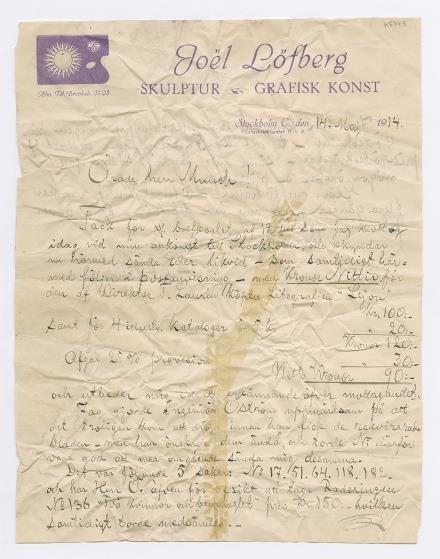 K6743
Joël Löfberg
SKULPTUR GRAFISK KONST
Stockholm C, den 14. Maj 1914.
Herr Munch!
Tack för af den 12 som jag mottog
idag vid min ankomst till Stockholm, och skyndar
nu härmed sända Eder likvid – som samtidigt här-
med följer i postanvisning – med Kronor Nittio för
den af Direktör T. Laurin köpta Litografien
Kr. 100:-
samt för 4 Kataloger à 5 Kr " 20:-
Kronor 120:-
Afgår 25% provision " 30:-
Netto Kronor 90:-
och utbeder mig Edert erkännande öfver mottagandet.
Jag gjorde Ingeniör Öström uppmärksam på att
det troligen kom att dröja innan han fick de
bladen – men han önskade dem ändå, och torde Ni därför
vara god att med omgående sända mig desamma.
Det var följande 5 saker: No 17, 51, 64, 118, 182
och har Herr Ö. äfven för afsikt att taga Raderingen
No 136 pris Kr 150.- hvilken
samtidigt torde medsändas. –